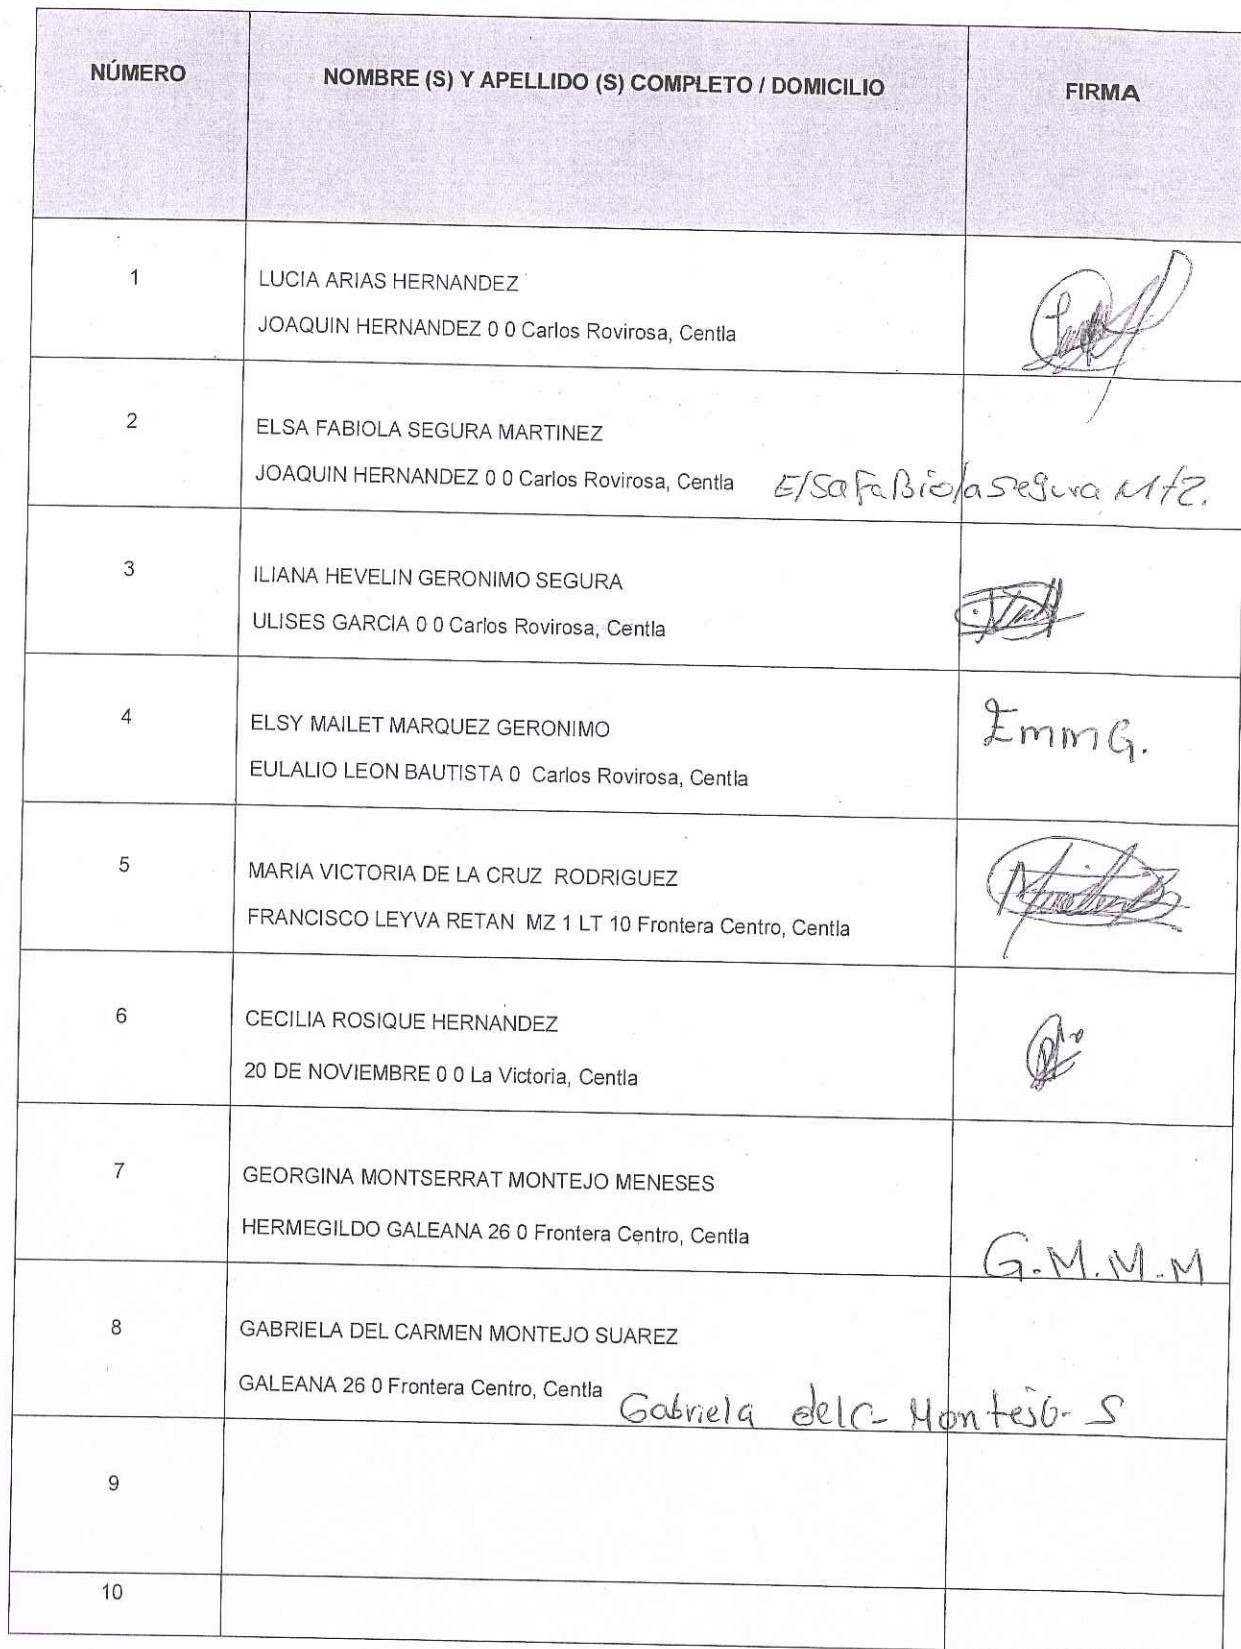 NÚMERO
NOMBRE (S) Y APELLIDO (S) COMPLETO / DOMICILIO
FIRMA
1
LUCIA ARIAS HERNANDEZ
JOAQUIN HERNANDEZ 0 0 Carlos Rovirosa, Centla
2
ELSA FABIOLA SEGURA MARTINEZ
JOAQUIN HERNANDEZ 0 0 Carlos Rovirosa, Centla
Elsa FaBiola Segura Mtz.
3
ILIANA HEVELIN GERONIMO SEGURA
ULISES GARCIA 0 0 Carlos Rovirosa, Centla
4
ELSY MAILET MARQUEZ GERONIMO
EULALIO LEON BAUTISTA 0 Carlos Rovirosa, Centla
EmmG.
5
MARIA VICTORIA DE LA CRUZ RODRIGUEZ
FRANCISCO LEYVA RETAN MZ 1 LT 10 Frontera Centro, Centla
6
CECILIA ROSIQUE HERNANDEZ
20 DE NOVIEMBRE 0 0 La Victoria, Centla
7
GEORGINA MONTSERRAT MONTEJO MENESES
HERMEGILDO GALEANA 26 0 Frontera Centro, Centla
G.M.M.M
8
GABRIELA DEL CARMEN MONTEJO SUAREZ
GALEANA 26 0 Frontera Centro, Centla
Gabriela del C- Montejo- S
9
10